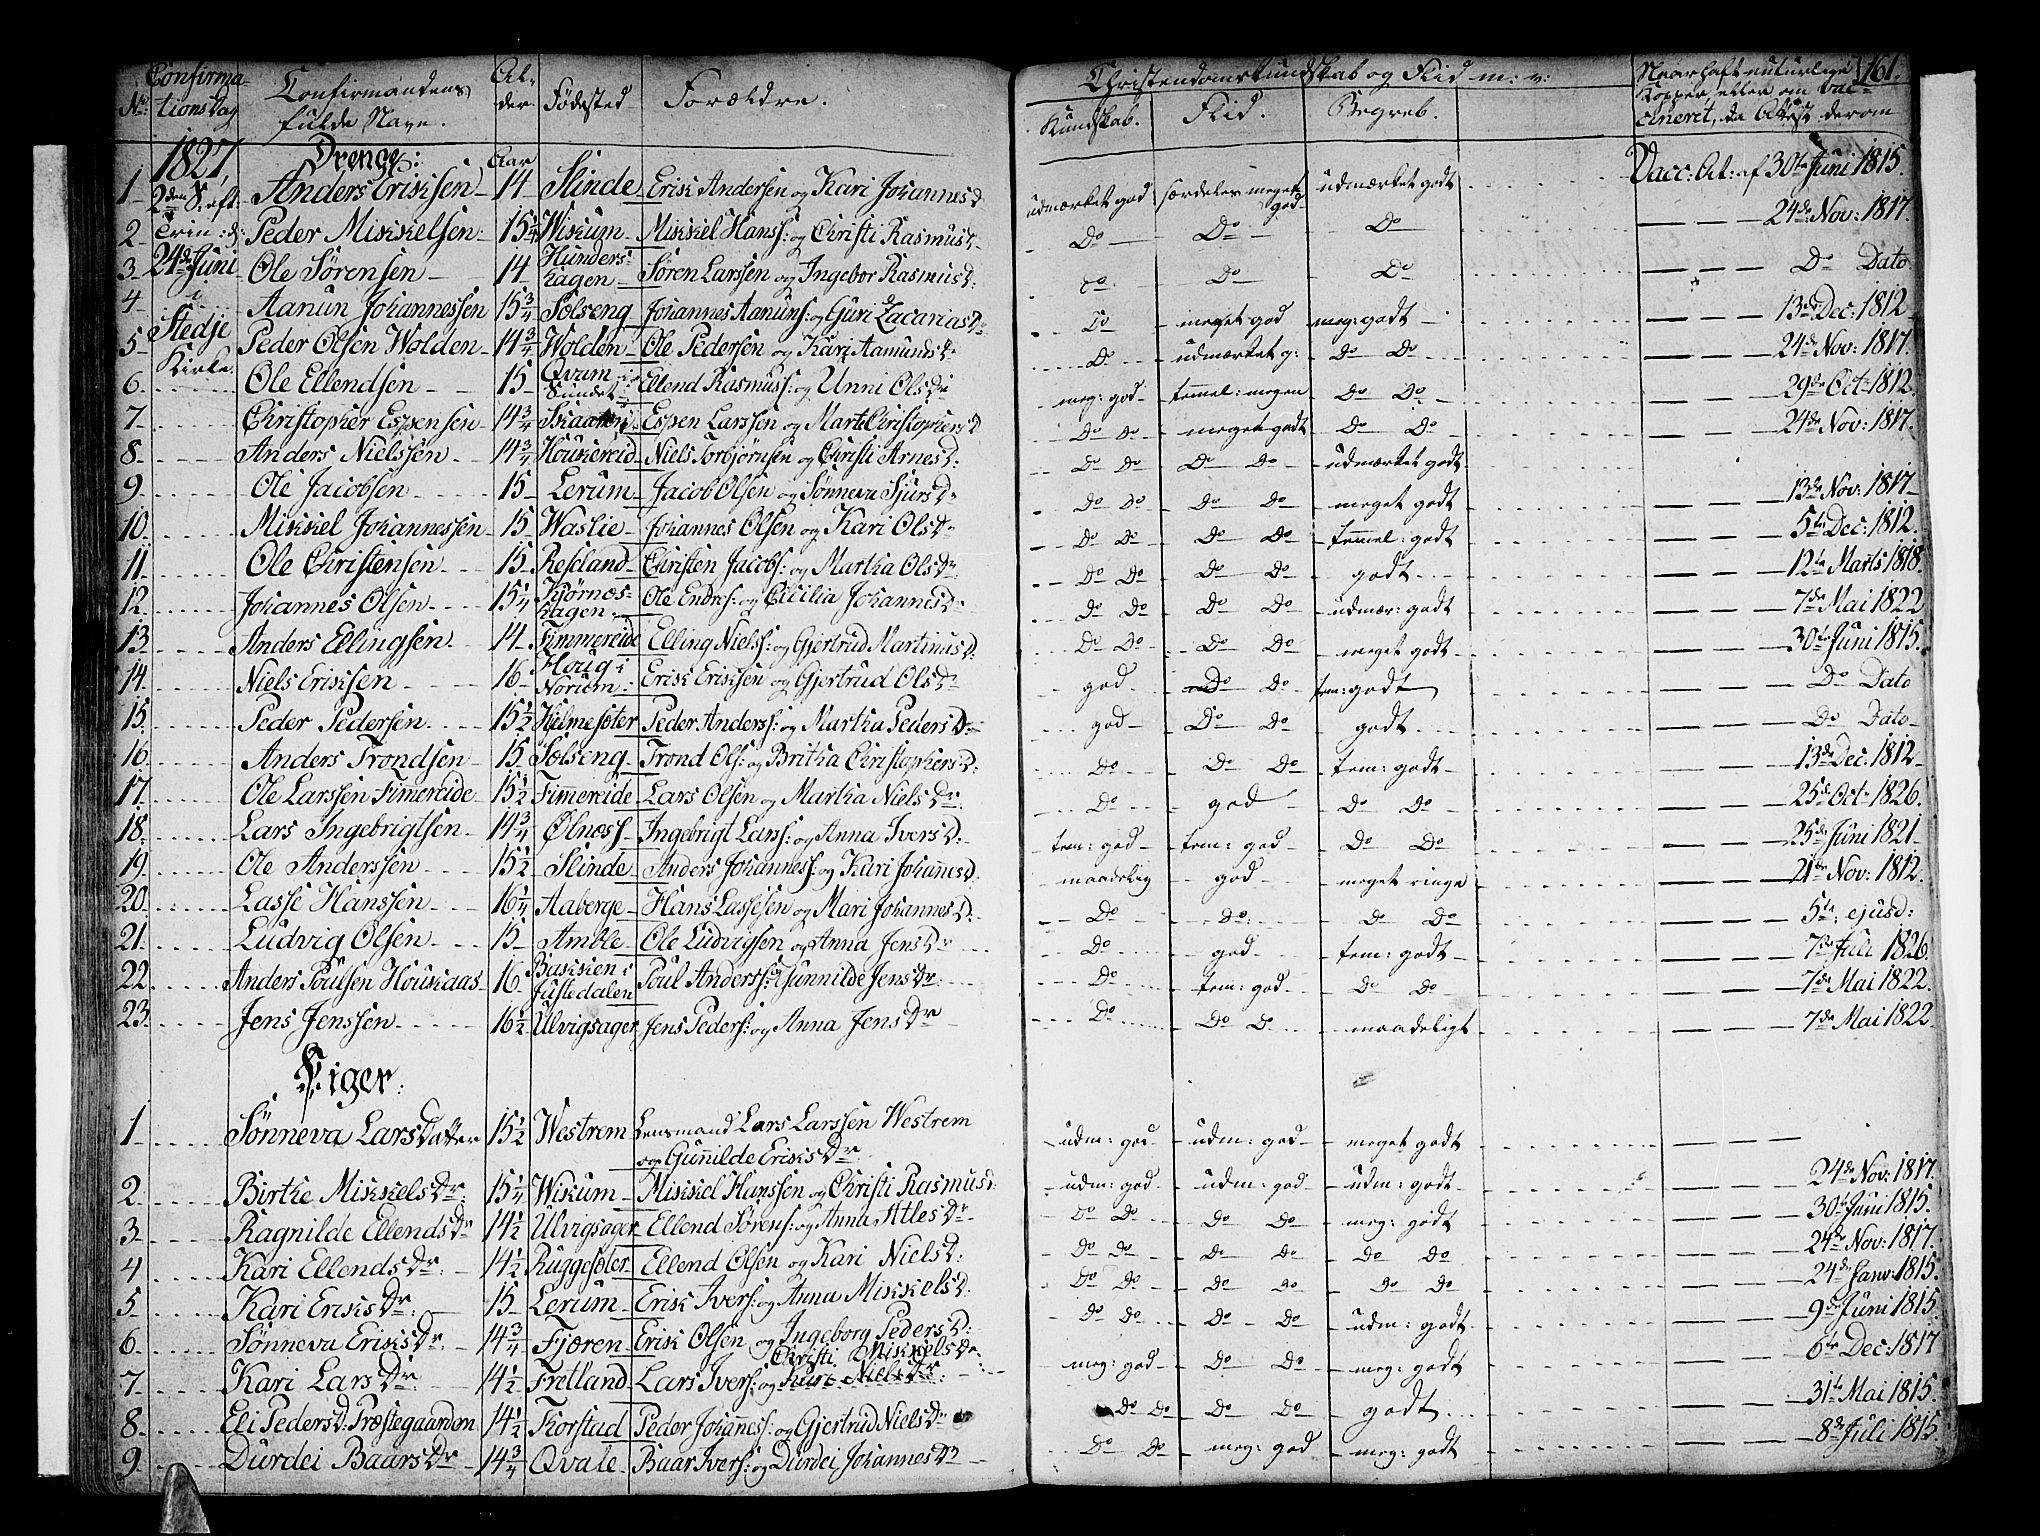 Nr. Confirmations Dag Confirmandens fulde Navn. Alder Fødested Forældre. Christendomskundskab og Flid m: v: Kundskab. Flid. Begreb. Naar haft naturlige Kopper, eller om vaccineret, da Attest derom 161.
1827, Drenge: Aar
1 2den S: eft. Anders Erissen 14 Slinde Erik Andersen og Kari Johannesd udmærket god særdeles meget god udmærket godt Vacc: At: af 30te Juni 1815
2 Trin: d: Peder Mikkelsen 15 1/4 Wikum Mikkel Hanss: og Christi Rasmusd Do Do Do 24de Nov: 1817.
3 24de Juni Ole Sørensen 14 Hundershagen Søren Larssen og Ingebor Rasmusd: Do Do Do Do Dato
4 i Aanun Johannessen 15 3/4 Sølseng Johannes Aanuns: og Guri Zacariasdr Do meget god meg: godt 13de Dec: 1812
5 Stedje Peder Olsen Wolden 14 3/4 Wolden Ole Pedersen og Kari Aamundsdr Do udmærket g: Do Do 24de Nov: 1817.
6 Kirke. Ole Ellendsen 15 Qvum i Sundet Ellend Rasmuss: og Unni Olsdr meg: god temmel: megen Do Do 29de Oct: 1812
7 Christopher Espensen 14 3/4 Espen Larssen og Marte Christophersd Do Do meget godt Do Do 24de Nov: 1817.
8 Anders Nielssen 14 3/4 Houkereid Niels Torbjørnsen og Christi Arnesd: Do Do Do Do udmærket godt
9 Ole Jacobsen 15 Lerum Jacob Olsen og Sønneva Sjursdr Do Do Do Do meget godt 13de Nov: 1817
10 Mikkel Johannessen 15 Waslie Johannes Olsen og Kari Olsdr Do Do Do Do temmel: godt 5te Dec: 1812.
11 Ole Christensen 15 Resland Christen Jacobs: og Martha Olsdr Do Do Do Do godt 12te Marts 1818
12 Johannes Olsen 15 1/4 Kjørneshagen Ole Endres: og Cicilia Johannisd: Do Do Do Do udmær: godt 7de Mai 1822
13 Anders Ellingsen 14 Fimmereide Elling Niels: og Gjertrud Martinusd: Do Do Do Do meget godt 30te Juni 1815.
14 Niels Eriksen 16 Houg i Norum Erik Eriksen og Gjertrud Olsdr god Do Do tem: godt Do Dato
15 Peder Pedersen 15 1/2 Hjelmesæter Peder Anderss: og Martha Pedersd: god Do Do godt Do Dato
16 Anders Trondsen 15 Sølseng Trond Ols: og Britha Christophersd: Do Do Do tem: godt 13de Dec: 1812
17 Ole Larssen Fimereide 15 1/2 Fimmereide Lars Olsen og Martha Nielsdr: Do god Do Do 25de Oct: 1826.
18 Lars Ingebrigtsen 14 3/4 Ølnæss Ingebrigt Larss: og Anna Iversd: tem: god tem: god Do Do 25de Juni 1821.
19 Ole Anderssen 15 1/2 Slinde Anders Johanness: og Kari Johannesd maadelig god meget ringe 21de Nov: 1812.
20 Lasse Hanssen 16 1/4 Aaberge Hans Lassesen og Mari Johannesd: Do Do Do Do 5te ejusd:
21 Ludvig Olsen 15 Amble Ole Ludvigsen og Anna Jensdr Do god tem: godt 7de Juli 1826
22 Anders Poulsen Houkaas 16 Bakken i Justedalen Poul Anderss: og Gunnilde Jensdr Do tem: god Do Do 7de Mai 1822.
23 Jens Jenssen 16 1/2 Ulvigsager Jens Peders: og Anna Jensdr Do Do Do maadeligt 7de Mai 1822
Piger:
1 Sønneva Larsdatter 15 1/2 Westrem Lensmand Lars Larssen Westrem og Gunnilde Eriksdr udm: god udm: god meget godt
2 Birthe Mikkelsdr: 15 1/4 Wikum Mikkel Hanssen og Christi Rasmusd: udm: god udm: god udm: godt 24de Nov: 1817.
3 Ragnilde Ellendsdr 14 1/2 Ulvigsager Ellend Sørens: og Anna Atlesdr Do Do Do Do meg: godt 30te Juni 1815.
4 Kari Ellendsdr 14 1/2 Ruggesæter Ellend Olsen og Kari Nielsd: Do Do Do Do Do Do 24de Nov: 1817.
5 Kari Eriksdr: 15 Lerum Erik Ivers: og Anna Mikkelsd: Do Do Do Do Do Do 24de Janv: 1815.
6 Sønneva Eriksdr: 14 3/4 Fjæren Erik Olsen og Ingeborg Pedersd: Do Do Do Do udm: godt 9de Juni 1815.
7 Kari Larsdr: 14 1/2 Fretland Lars Ivers: og Kari Nielsdr: Christi Mikkelsdr meg: god Do Do meg: godt 6te Dec: 1817
8 Eli Pedersd: Præstegaarden 14 1/2 Korstad Peder Johanness: og Gjertrud Nielsdr Do Do Do Do godt 31te Mai 1815.
9 Durdei Baarsdr 14 3/4 Qvale Baar Ivers: og Durdei Johannesdr Do Do meg: god meg: godt 8de Juli 1815